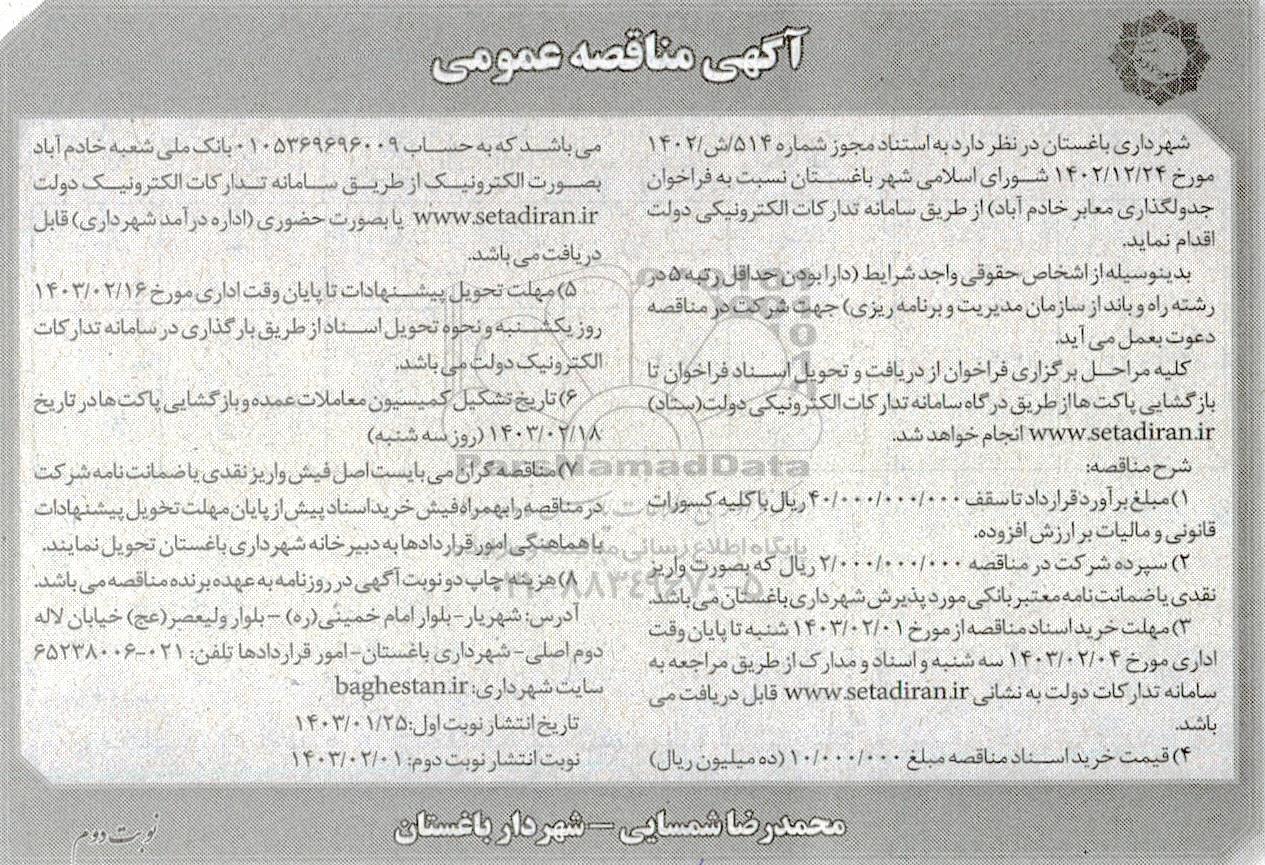 آگهی مناقصه عمومی
شهرداری باغستان در نظر دارد به استناد مجوز شماره ۵۱۴/ش/۱۴۰۲
مورخ ۱۴۰۲/۱۲/۲۴ شورای اسلامی شهر باغستان نسبت به فراخوان
جدولگذاری معابر خادم آباد) از طریق سامانه تدارکات الکترونیکی دولت
اقدام نماید.
بدینوسیله از اشخاص حقوقی واجد شرایط (دارا بودن حداقل رتبه ۵ در
رشته راه و باند از سازمان مدیریت و برنامه ریزی) جهت شرکت در مناقصه
دعوت بعمل می آید.
کلیه مراحل برگزاری فراخوان از دریافت و تحویل اسناد فراخوان تا
بازگشایی پاکت ها از طریق درگاه سامانه تدارکات الکترونیکی دولت(ستاد)
www.setadiran.ir انجام خواهد شد.
شرح مناقصه:
۱) مبلغ برآورد قرارداد تا سقف ۴۰/۰۰۰/۰۰۰/۰۰۰ ریال با کلیه کسورات
قانونی و مالیات بر ارزش افزوده.
۲) سپرده شرکت در مناقصه ۲/۰۰۰/۰۰۰/۰۰۰ ریال که بصورت واریز
نقدی یا ضمانت نامه معتبر بانکی مورد پذیرش شهرداری باغستان می باشد.
۳) مهلت خرید اسناد مناقصه از مورخ ۱۴۰۳/۰۲/۰۱ شنبه تا پایان وقت
اداری مورخ ۱۴۰۳/۰۲/۰۴ سه شنبه و اسناد و مدارک از طریق مراجعه به
سامانه تدارکات دولت به نشانی www.setadiran.ir قابل دریافت می
باشد.
۴) قیمت خرید اسناد مناقصه مبلغ ۱۰/۰۰۰/۰۰۰ (ده میلیون ریال)
می باشد که به حساب ۰۱۰۵۳۶۹۶۹۶۰۰۹ بانک ملی شعبه خادم آباد
بصورت الکترونیک از طریق سامانه تدارکات الکترونیک دولت
www.setadiran.ir یا بصورت حضوری (اداره درآمد شهرداری) قابل
دریافت می باشد.
۵) مهلت تحویل پیشنهادات تا پایان وقت اداری مورخ ۱۴۰۳/۰۲/۱۶
روز یکشنبه و نحوه تحویل اسناد از طریق بارگذاری در سامانه تدارکات
الکترونیک دولت می باشد.
۶) تاریخ تشکیل کمیسیون معاملات عمده و بازگشایی پاکت ها در تاریخ
۱۴۰۳/۰۲/۱۸ (روز سه شنبه)
۷) مناقصه گران می بایست اصل فیش واریز نقدی یا ضمانت نامه شرکت
در مناقصه را بهمراه فیش خرید اسناد پیش از پایان مهلت تحویل پیشنهادات
با هماهنگی امور قراردادها به دبیرخانه شهرداری باغستان تحویل نمایند.
۸) هزینه چاپ دو نوبت آگهی در روزنامه به عهده برنده مناقصه می باشد.
آدرس: شهریار- بلوار امام خمینی(ره) – بلوار ولیعصر(عج) خیابان لاله
دوم اصلی- شهرداری باغستان- امور قراردادها تلفن: ۰۲۱-۶۵۲۳۸۰۰۶
سایت شهرداری: baghestan.ir
تاریخ انتشار نوبت اول: ۱۴۰۳/۰۱/۲۵
نوبت انتشار نوبت دوم: ۱۴۰۳/۰۲/۰۱
محمدرضا شمسایی – شهردار باغستان
نوبت دوم
ParsNamadData
پایگاه اطلاع رسانی